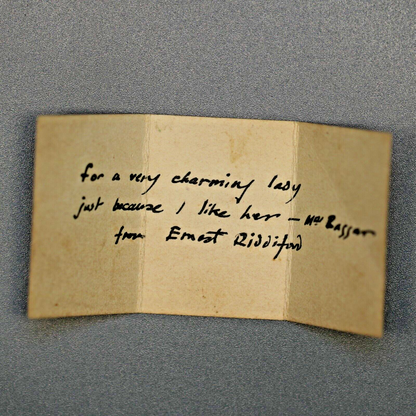 for a very charming lady
just because I like her — Mrs Bassar
from Ernest Riddiford